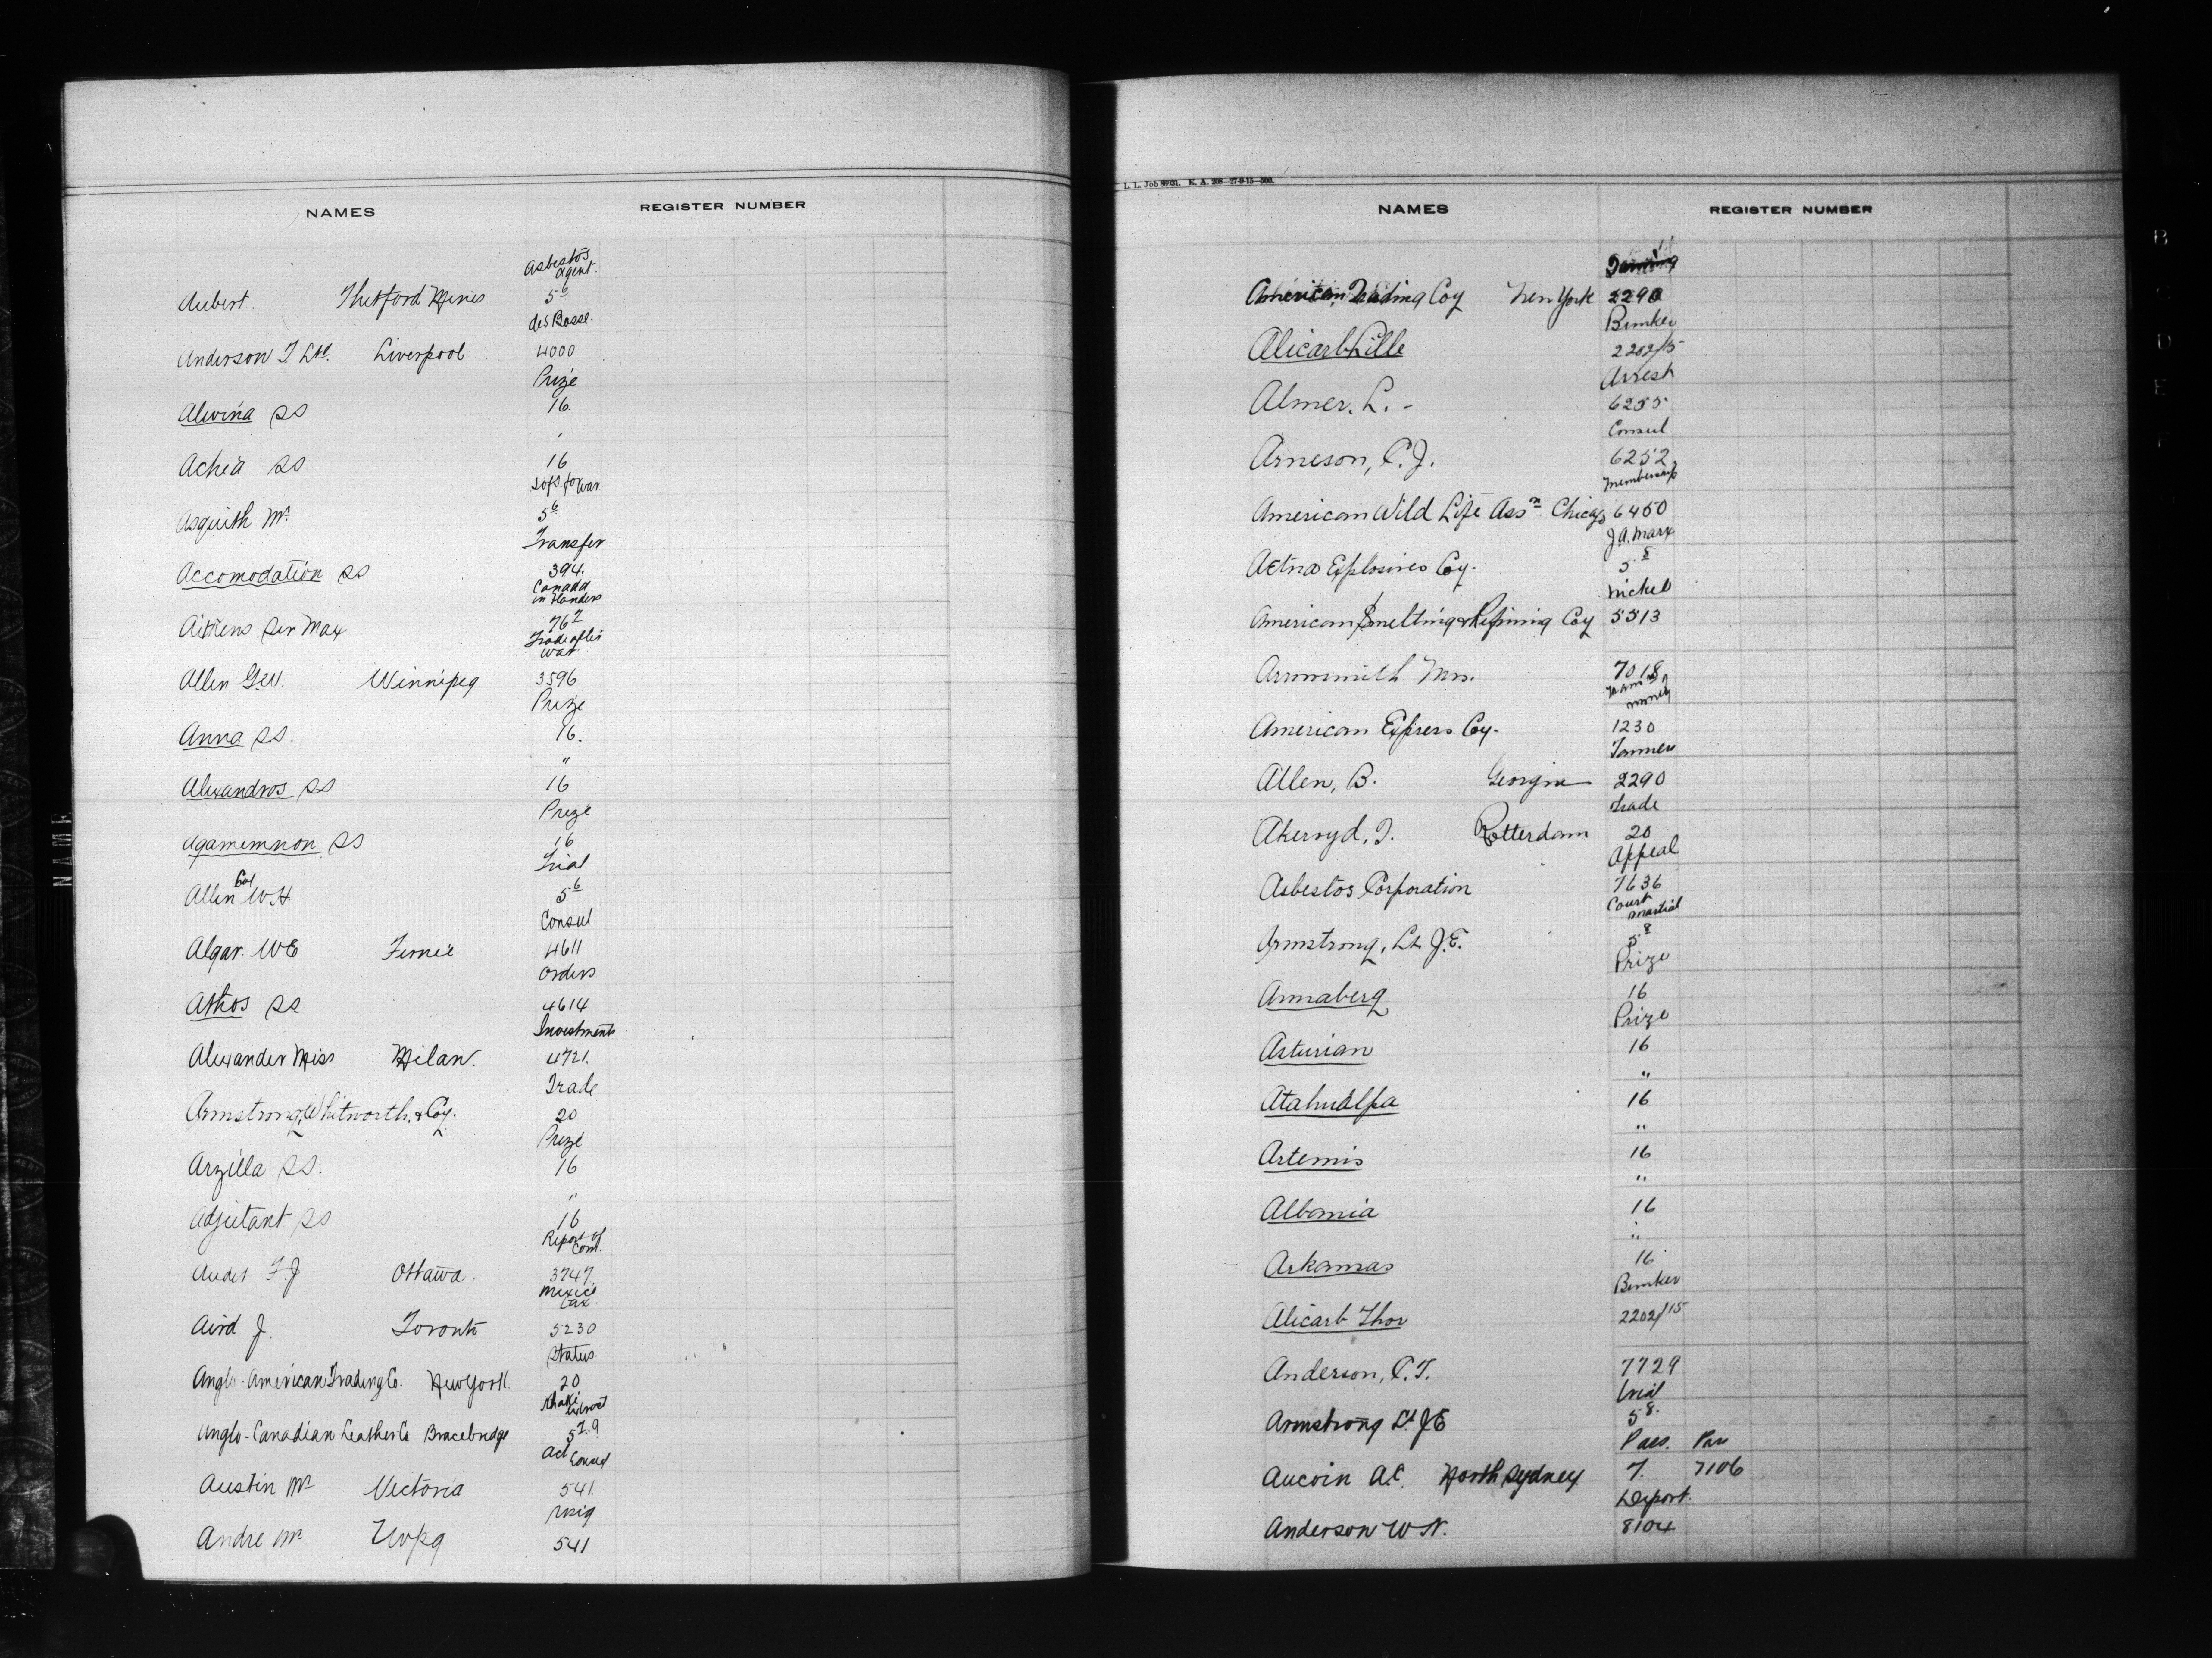 NAMES REGISTER NUMBER
Asbestos
agent.
Aubert. Thetford Mines 5⁶
des Bosse.
Anderson T Ltd. Liverpool 4000
Prize
Alwina SS 16.
"
Achia SS 16
Sofs. for War
Asquith Mr. 5⁶
Transfer
Accomodation SS 394.
Canada
in Flanders
Aitkens Sir Max 76²
Trade after
war
Allen G.W. Winnipeg 3596
Prize
Anna SS. 16.
"
Alexandros SS 16
Prize
Agamemnon SS 16
Trial
Allen Col W H 5⁶
Consul
Algar. W E Fernie 4611
Orders
Athos SS 4614
Investments
Alexander Miss Milan. 4721.
Trade
Armstrong, Whitworth, & Coy. 20
Prize
Arzilla SS. 16
"
Adjutant SS 16
Report of
Com.
Audet F. J Ottawa. 3747.
Mexico
tax.
Aird J. Toronto 5230
Status
Anglo-American Trading Co. New York. 20
Khaki
Anglo-Canadian Leather Co Bracebridge 5²·⁹
Act Consul
Austin Mr Victoria 541.
Andre Mr Wpg 541
L. L. Job 89031. K. A. 208—27-9-15—500.
NAMES REGISTER NUMBER
American Trading Coy New York 2290
Bunker
Alicarb Lille 2202/15
Arrest
Almer, L. - 6255
Consul
Arneson, C. J. 6252
Membership
American Wild Life Assn Chicago 6450
J. A. Marx
Aetna Explosives Coy. 5⁸
Nickel
American Smelting & Refining Coy 5513
Arrowsmith Mrs. 7018
money
American Express Coy. 1230
Tanners
Allen, B. Georgia 2290
Trade
Akeroyd, J. Rotterdam 20
Appeal
Asbestos Corporation 7636
Court
martial
Armstrong, Lt. J. E. 5⁸
Prize
Annaberg 16
Prize
Asturian 16
"
Atahualpa 16
"
Artemis 16
"
Albania 16
"
Arkansas 16
Bunker
Alicarb Thor 2202/15
Anderson, C. T. 7729
trial
Armstrong Lt J E 5⁸.
Pass. Pass
Aucoin A. C. North Sydney 7. 7106
Deport.
Anderson W N. 8104